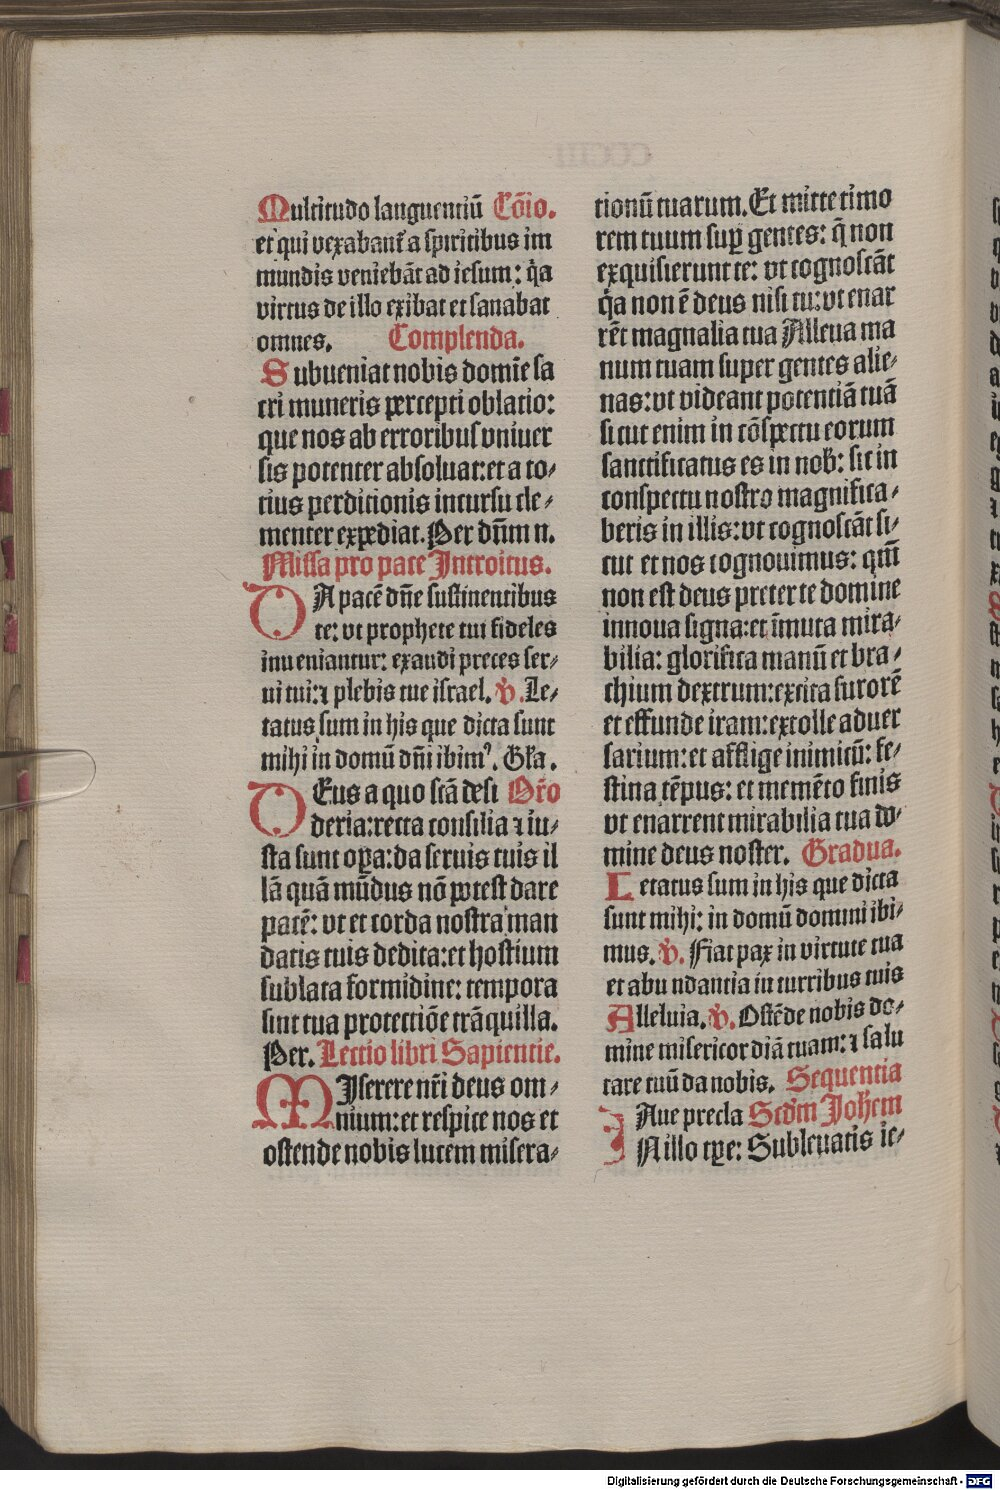 Multitudo languentiū Cōio.
et qui vexabanť a spiritibus im
mundis veniebāt ad iesum: q̄a
virtus de illo exibat et sanabat
omnes. Complenda.
Subueniat nobis domīe sa
cri muneris ꝑcepti oblatio:
que nos ab erroribus vniuer
sis potenter absoluat: et a to⸗
tius perditionis incursu cle⸗
menter expediat. Per dn̄m n.
Missa pro pace Introitus.
DA pacē dn̄e sustinentibus
te: vt prophete tui fideles
inueniantur: exaudi preces ser⸗
ui tui: ⁊ plebis tue israel. ℣. Le⸗
tatus sum in his que dicta sunt
mihi in domū dn̄i ibimꝰ. Gl̄a.
DEus a quo scā desi Or̄o
deria: recta consilia ⁊ iu⸗
sta sunt oꝑa: da seruis tuis il
lā quā mūdus nō potest dare
pacē: vt et corda nostra man
datis tuis dedita: et hostium
sublata formidine: tempora
sint tua protectiōe trāquilla.
Per. Lectio libri Sapientie.
MIserere nr̄i deus om⸗
nium: et respice nos et
ostende nobis lucem misera⸗
tionū tuarum. Et mitte timo
rem tuum suꝑ gentes: q̄ non
exquisierunt te: vt cognoscāt
q̄a non ē deus nisi tu: vt enar
rēt magnalia tua Alleua ma
num tuam super gentes alie⸗
nas: vt videant potentiā tuā
sicut enim in cōspectu eorum
sanctificatus es in nob̄: sic in
conspectu nostro magnifica⸗
beris in illis: vt cognoscāt si⸗
cut et nos cognouimus: qm̄
non est deus preter te domine
innoua signa: et īmuta mira⸗
bilia: glorifica manū et bra⸗
chium dextrum: excita furorē
et effunde iram: extolle aduer
sarium: et afflige inimicū: fe⸗
stina tēpus: et memēto finis
vt enarrent mirabilia tua do⸗
mine deus noster. Gradua.
Letatus sum in his que dicta
sunt mihi: in domū domini ibi⸗
mus. ℣. Fiat pax in virtute tua
et abundantia in turribus tuis
Alleluia. ℣. Ostēde nobis do⸗
mine misericordiā tuam: ⁊ salu
tare tuū da nobis. Sequentia
Aue precla Scd̄m Joh̄em
IN illo tꝑe: Subleuatis ie⸗
Digitalisierung gefördert durch die Deutsche Forschungsgemeinschaft - DFG